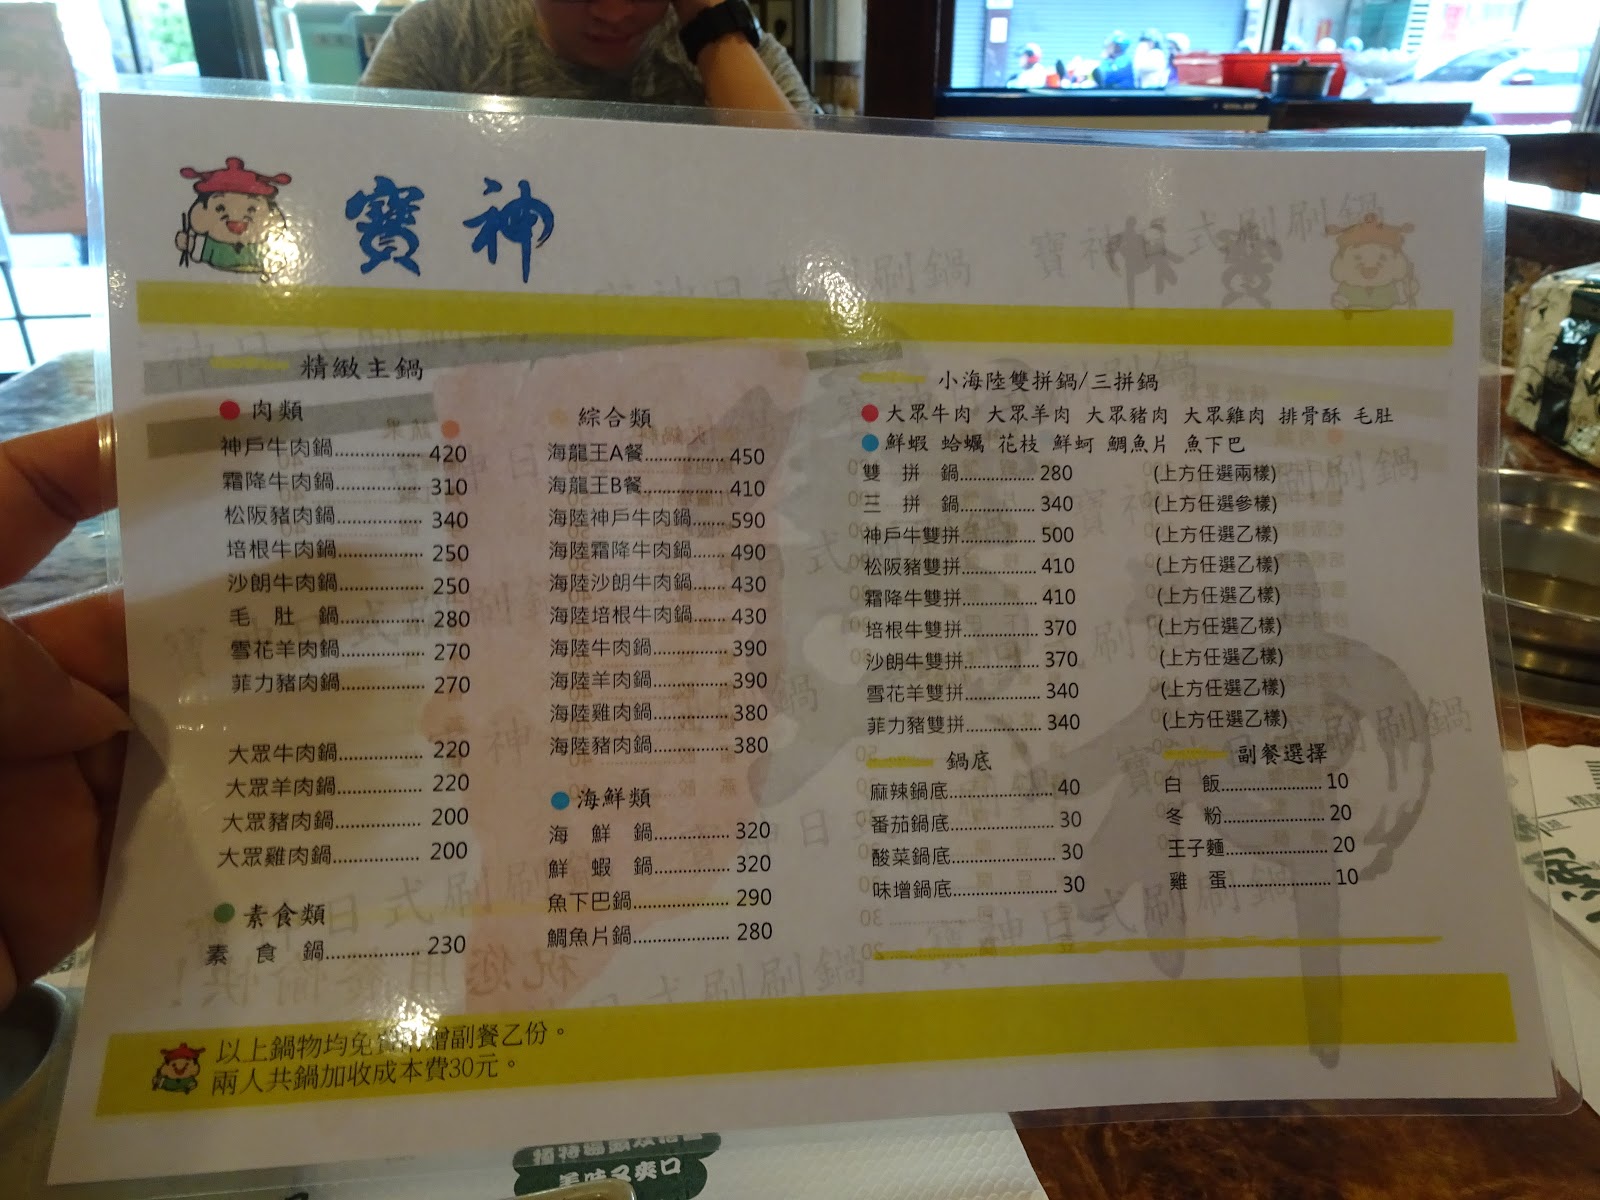 寶神
精緻主鍋
肉類
神戶牛肉鍋................ 420
霜降牛肉鍋................ 310
松阪豬肉鍋................ 340
培根牛肉鍋................ 250
沙朗牛肉鍋................ 250
毛 肚 鍋................ 280
雪花羊肉鍋................ 270
菲力豬肉鍋................ 270
大眾牛肉鍋................ 220
大眾羊肉鍋................ 220
大眾豬肉鍋................ 200
大眾雞肉鍋................ 200
素食類
素 食 鍋.................. 230
綜合類
海龍王A餐............... 450
海龍王B餐............... 410
海陸神戶牛肉鍋...... 590
海陸霜降牛肉鍋...... 490
海陸沙朗牛肉鍋...... 430
海陸培根牛肉鍋...... 430
海陸牛肉鍋.............. 390
海陸羊肉鍋.............. 390
海陸雞肉鍋.............. 380
海陸豬肉鍋.............. 380
海鮮類
海 鮮 鍋.............. 320
鮮 蝦 鍋.............. 320
魚下巴鍋.................. 290
鯛魚片鍋.................. 280
小海陸雙拼鍋/三拼鍋
大眾牛肉 大眾羊肉 大眾豬肉 大眾雞肉 排骨酥 毛肚
鮮蝦 蛤蠣 花枝 鮮蚵 鯛魚片 魚下巴
雙 拼 鍋................. 280 (上方任選兩樣)
三 拼 鍋................. 340 (上方任選參樣)
神戶牛雙拼................. 500 (上方任選乙樣)
松阪豬雙拼................. 410 (上方任選乙樣)
霜降牛雙拼................. 410 (上方任選乙樣)
培根牛雙拼................. 370 (上方任選乙樣)
沙朗牛雙拼................. 370 (上方任選乙樣)
雪花羊雙拼................. 340 (上方任選乙樣)
菲力豬雙拼................. 340 (上方任選乙樣)
鍋底
麻辣鍋底..................... 40
番茄鍋底..................... 30
酸菜鍋底..................... 30
味增鍋底..................... 30
副餐選擇
白 飯....................... 10
冬 粉....................... 20
王子麵....................... 20
雞 蛋....................... 10
以上鍋物均免費附贈副餐乙份。
兩人共鍋加收成本費30元。
美味又爽口